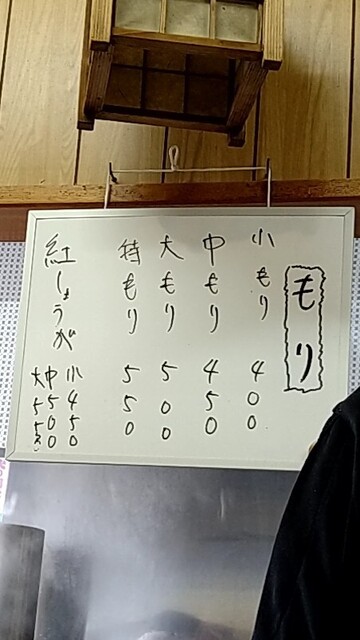 もり
小もり 400
中もり 450
大もり 500
特もり 550
紅しょうが 小 450
中 500
大 550